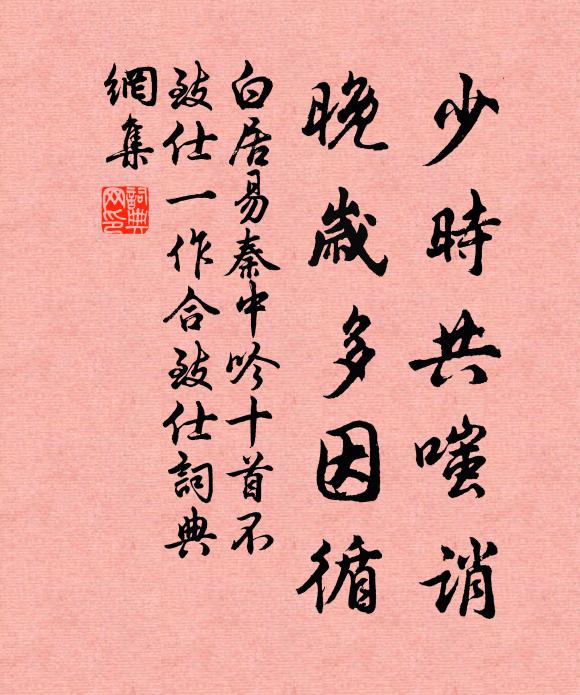 少時共嗤誚
晚歲多因循
白居易秦中吟十首不
致仕一作合致仕詞典
網集
詞典
网印